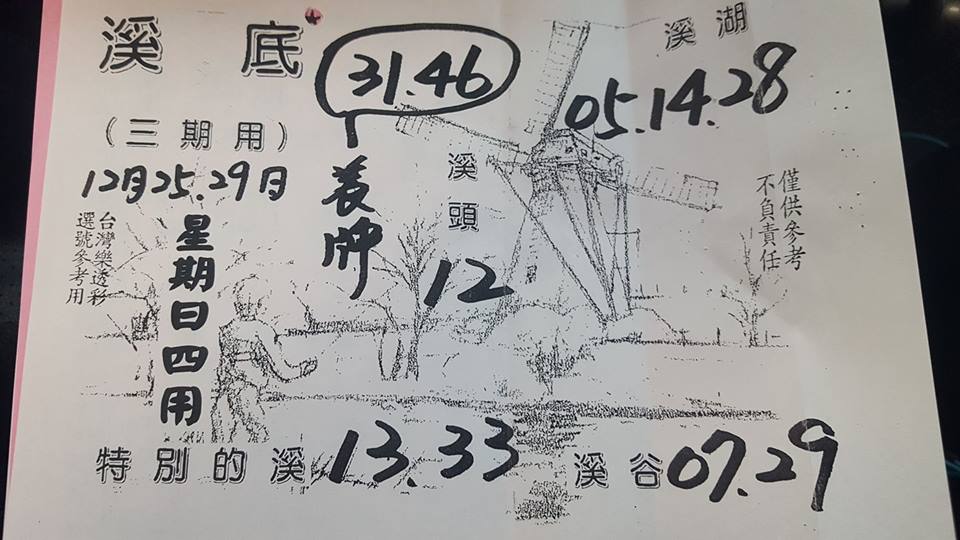 溪底
31.46
溪湖
05.14.28
(三期用)
12月25.29日
溪頭
12
僅供參考
不負責任
台灣樂透彩
選號參考用
星期日四用
特別的溪 13.33
溪谷 07.29